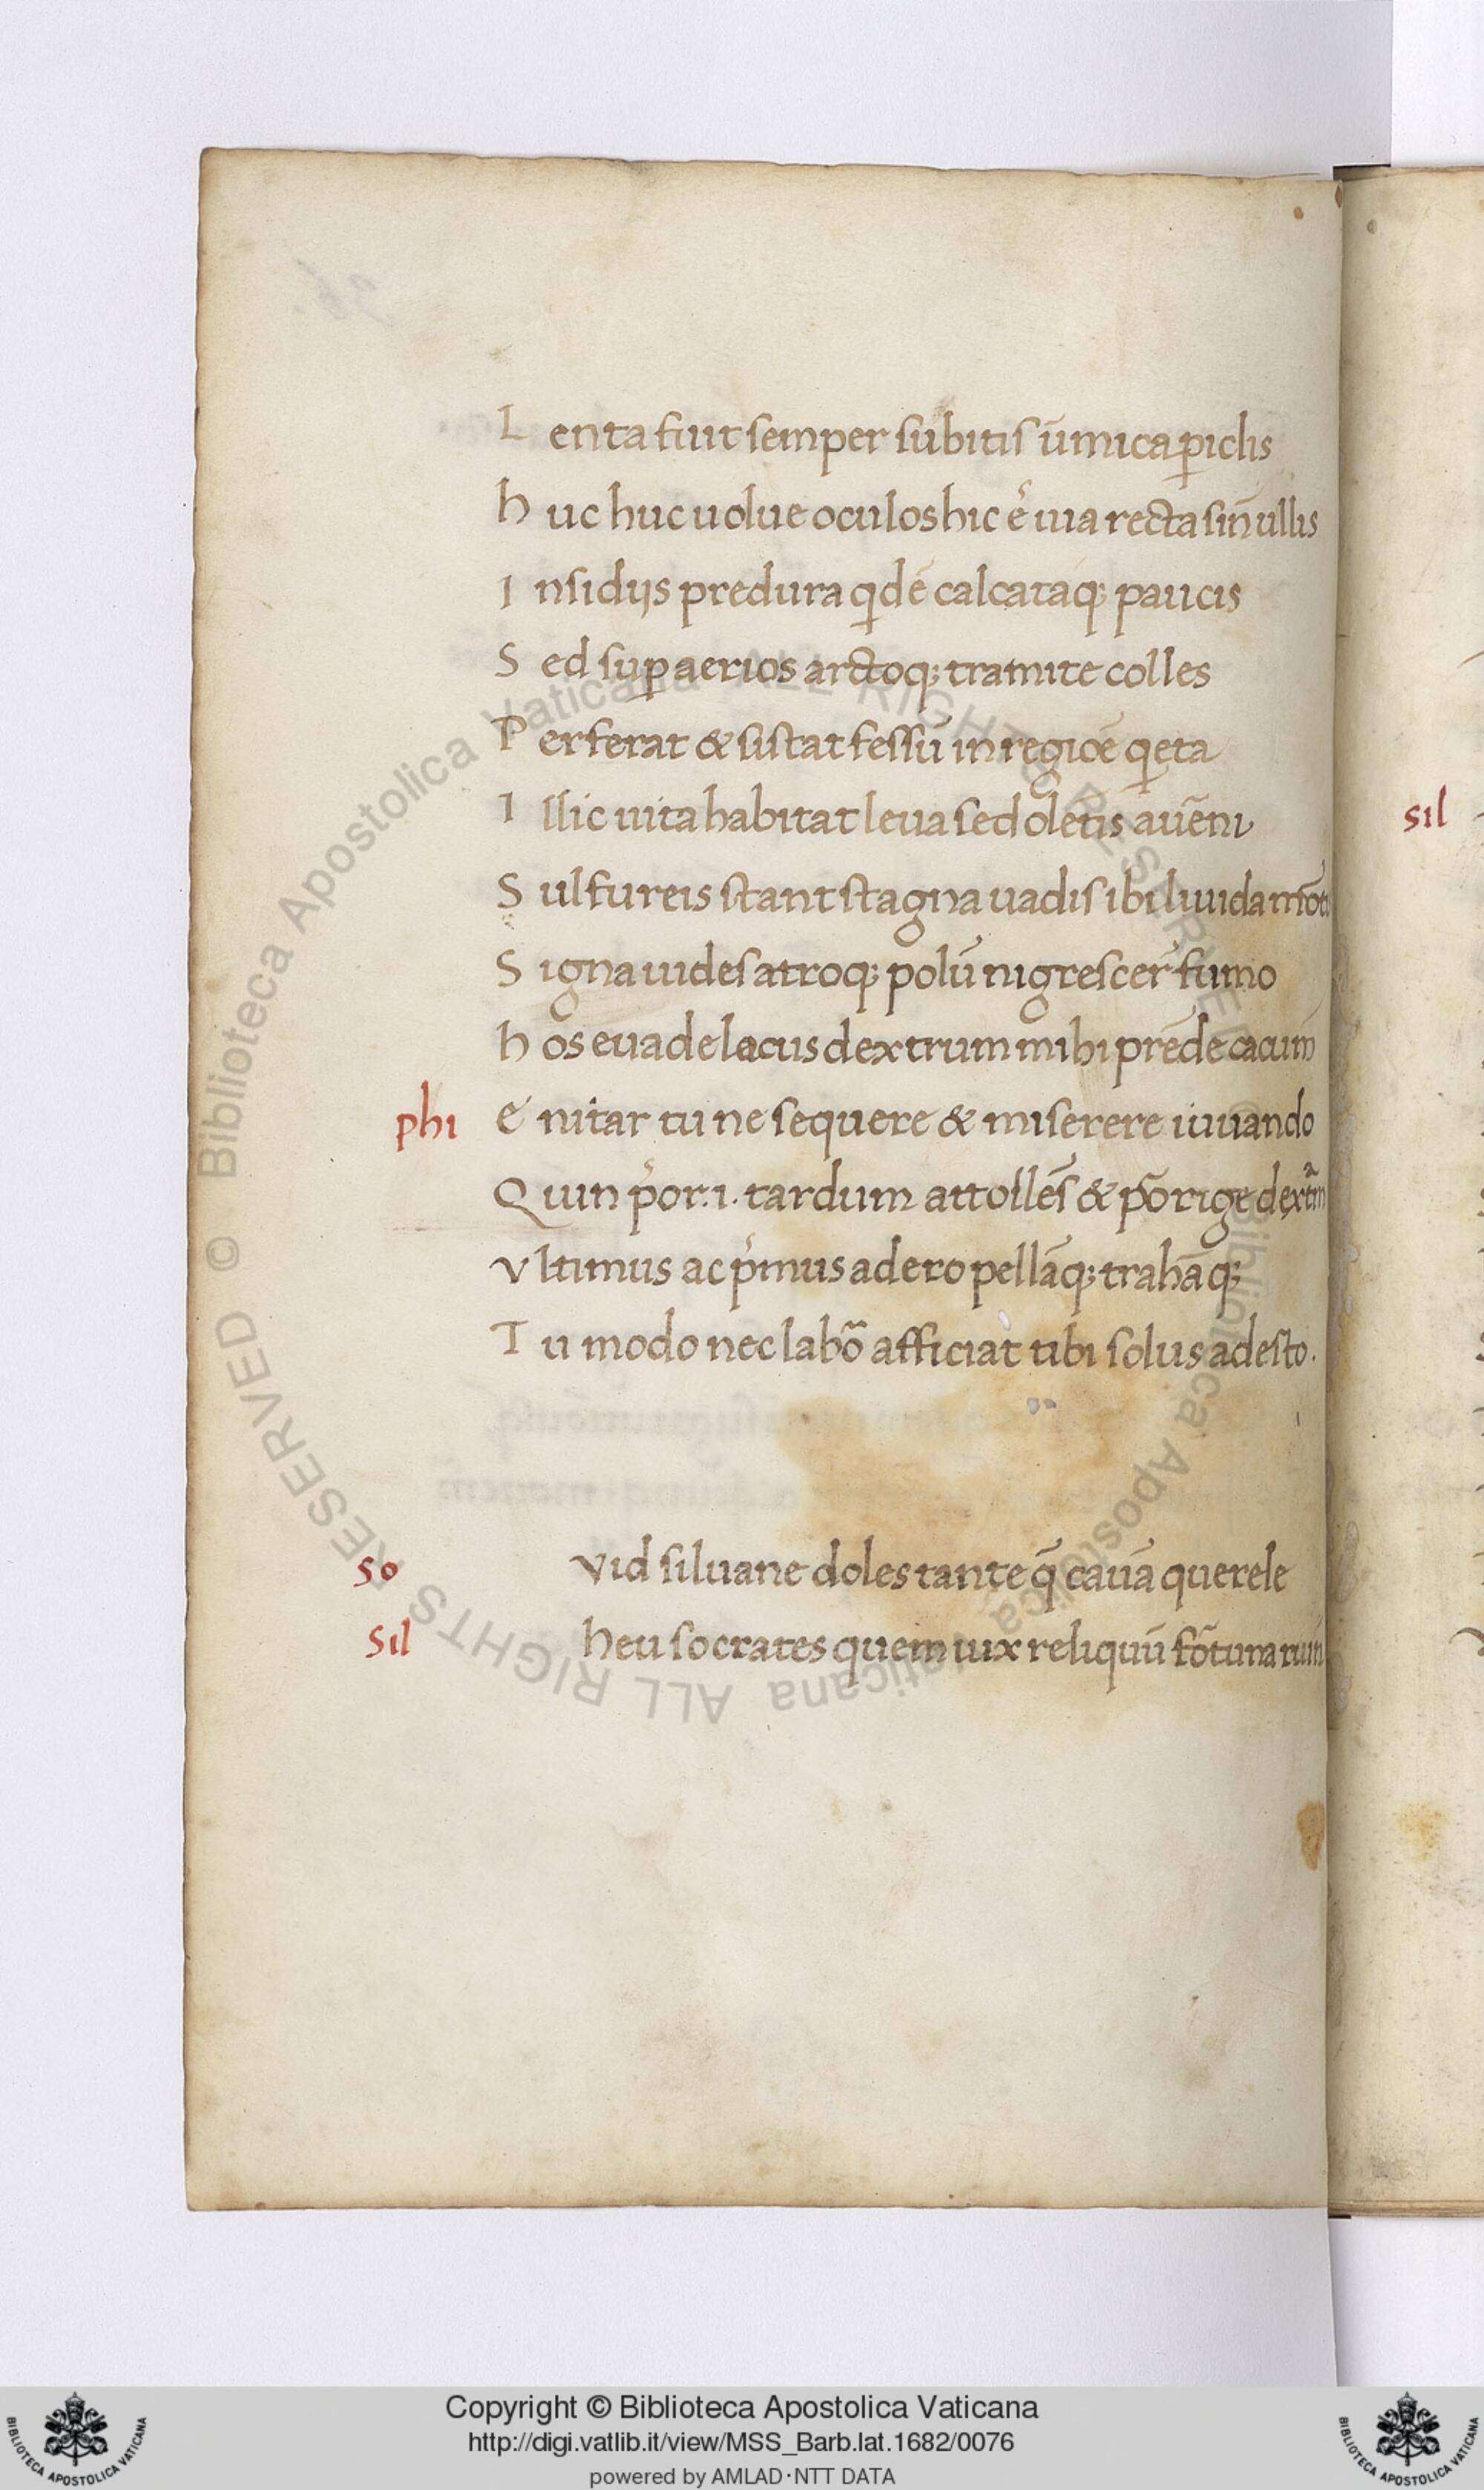 L enta fuit semper subitis ūmica ꝑiclis
h uc huc uolue oculos hic ē uia recta sin̄ ullis
I nsidijs predura qͥdē calcataq; paucis
S ed suꝑ aerios arctoq; tramite colles
P erferat & sistat fessū in regiōe qͥeta
I llic uita habitat leua sed olētis auēni
S ulfureis stant stagna uadis ibi liuida
S igna uides atroq; polū nigrescer̄ fumo
h os euade lacus dextrum mihi prēde cacum̄
phi E nitar tu ne sequere & miserere iuuando
Q uin pͥor .i. tardum attollēs & ꝓrige dextͣm
V ltimus ac pͥmus adero pellāq; trahāq;
T u modo nec labō afficiat tibi solus adesto.
so vid siluane doles tante q̄ cauā querele
sil heu socrates quem uix reliquū fōtuna
sil
Copyright © Biblioteca Apostolica Vaticana
http://digi.vatlib.it/view/MSS_Barb.lat.1682/0076
powered by AMLAD·NTT DATA
© Biblioteca Apostolica Vaticana ALL RIGHTS RESERVED © Biblioteca Apostolica Vaticana ALL RIGHTS RESERVED
BIBLIOTECA APOSTOLICA VATICANA
BIBLIOTECA APOSTOLICA VATICANA